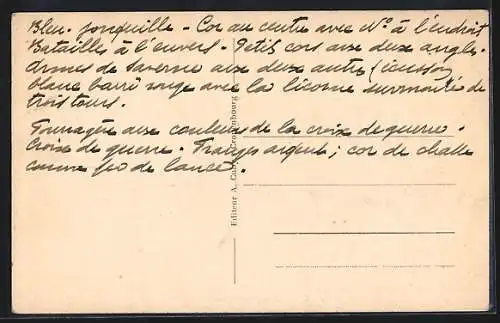 Bleu-jonquille - Cor au centre avec N° à l'endroit
Batailles à l'envers. Petits cors aux deux angles.
Armes de Saverne aux deux autres (écusson
blanc barré rouge avec la licorne surmonté de
trois tours.
Fourragère aux couleurs de la croix de guerre.
Croix de guerre. Franges argent; cor de chasse
comme fer de lance.
Editeur A. Cronenbourg